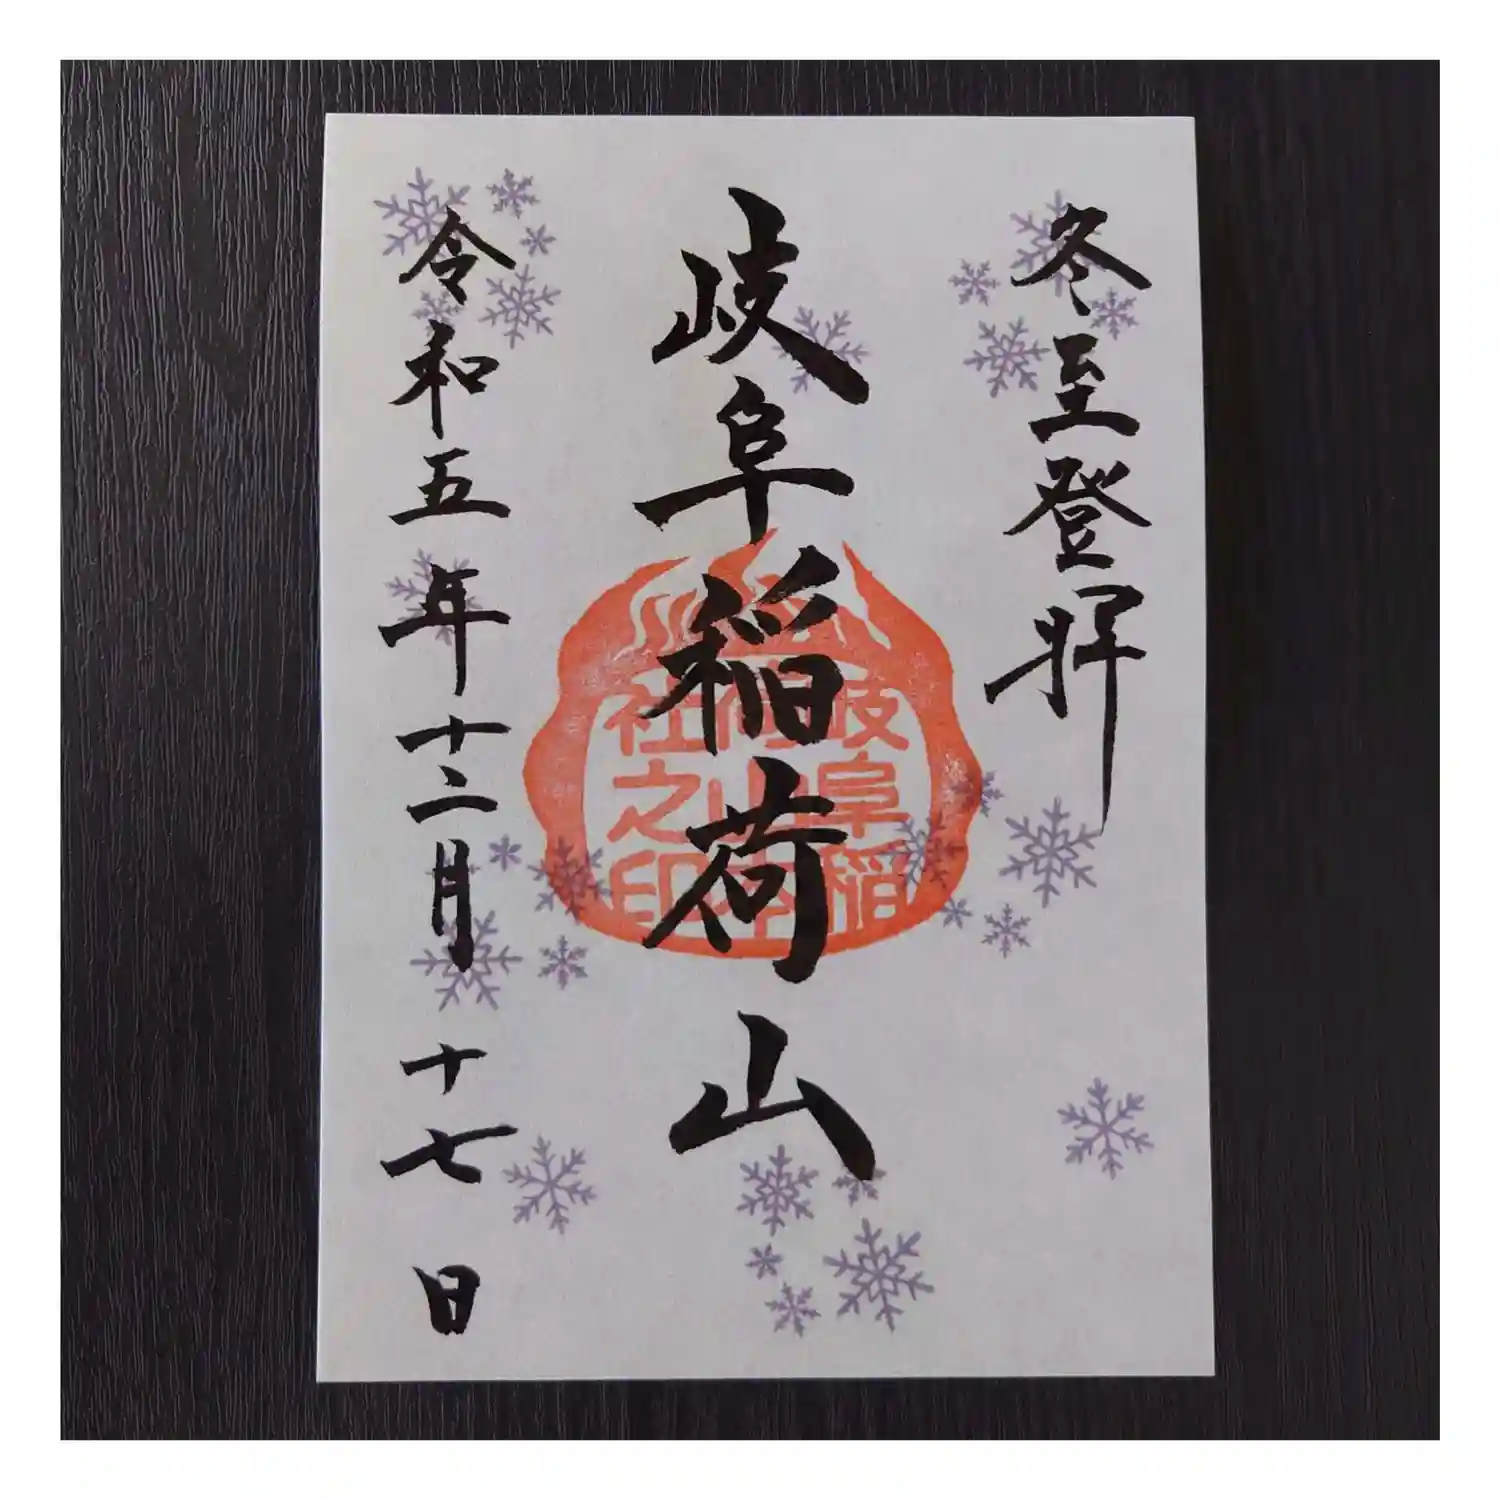 冬至登拝
岐阜稲荷山
岐阜稲
荷山本
社之印
令和五年十二月十七日